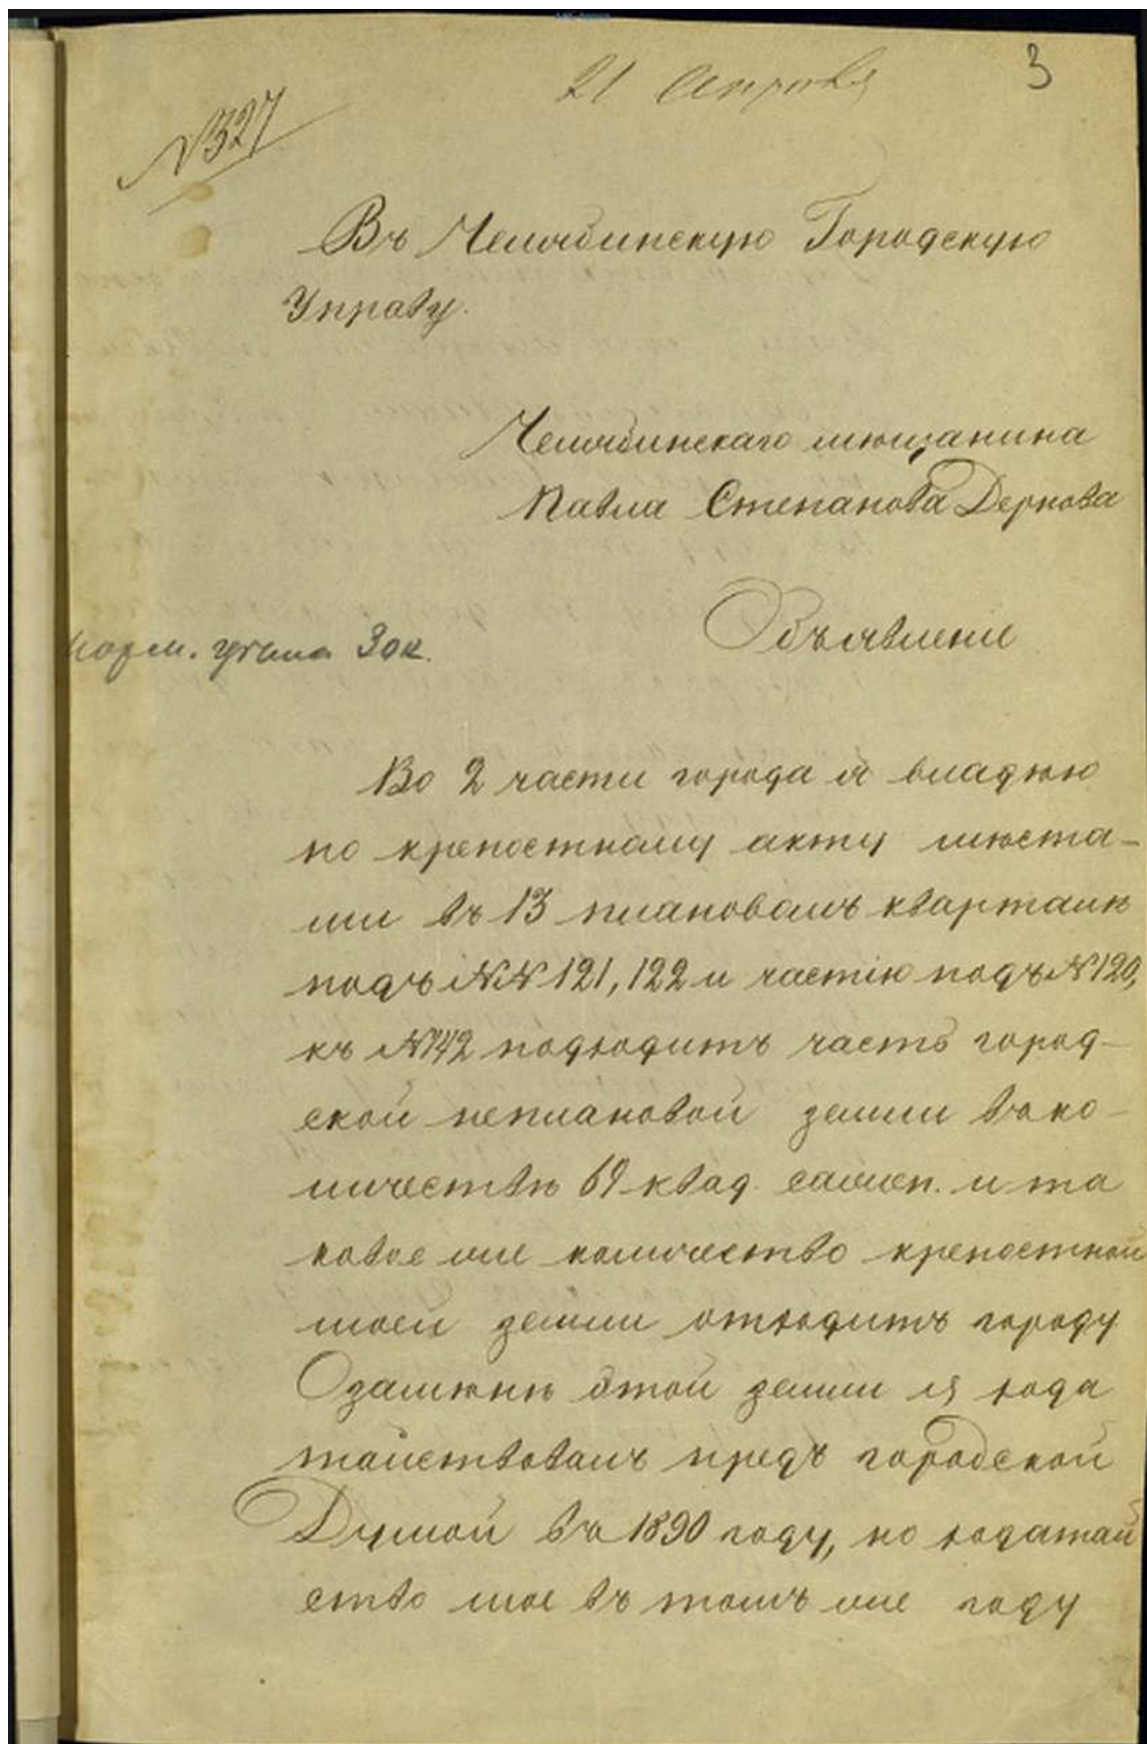 21 Апреля
3
№327
Въ Челябинскую Городскую
Управу.
Челябинскаго мѣщанина
Павла Степанова Дернова
Объявленіе
марк. уплач. 30к.
Во 2 части города я владѣю
по крепостному акту мѣста-
ми въ 13 плановомъ кварталѣ
подъ №№ 121, 122 и частію подъ №120,
къ №142 подходитъ часть город-
ской неплановой земли въ ко-
личествѣ 69 квад. сажен. и та
ковое же количество крепостной
моей земли отходитъ городу
О замѣнѣ этой земли я хода
тайствовалъ предъ городской
Думой въ 1890 году, но ходатай
ство мое въ томъ же году